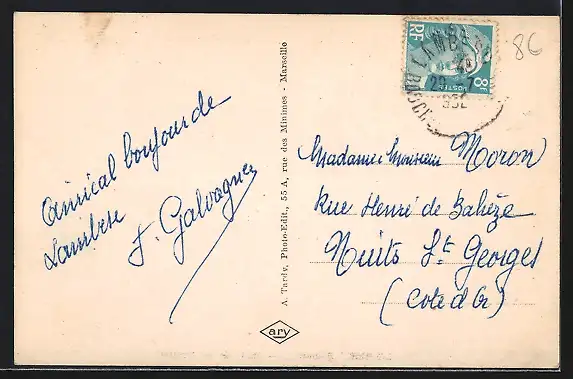 Amical bonjour de
Lambesc
J. Galvagne
A. Tardy, Photo-Edit., 55 A, rue des Minimes - Marseille
ary
RF
8F
POSTES
LAMBESC
86
Madame Monsieur Moron
Rue Henri de Bahèze
Nuits St Georges
(Cote d'Or)